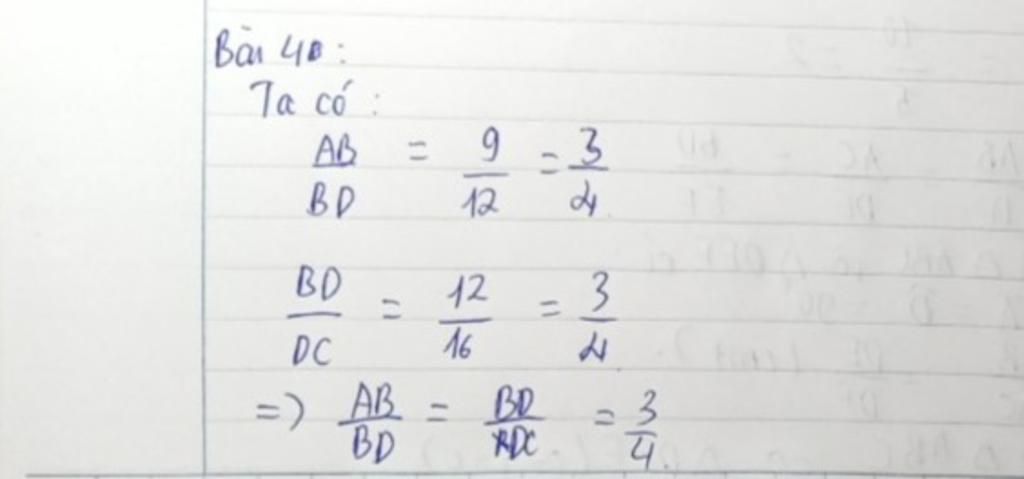 Bài 4B:
Ta có:
AB/BD = 9/12 = 3/4
BD/DC = 12/16 = 3/4
=> AB/BD = BD/DC = 3/4.